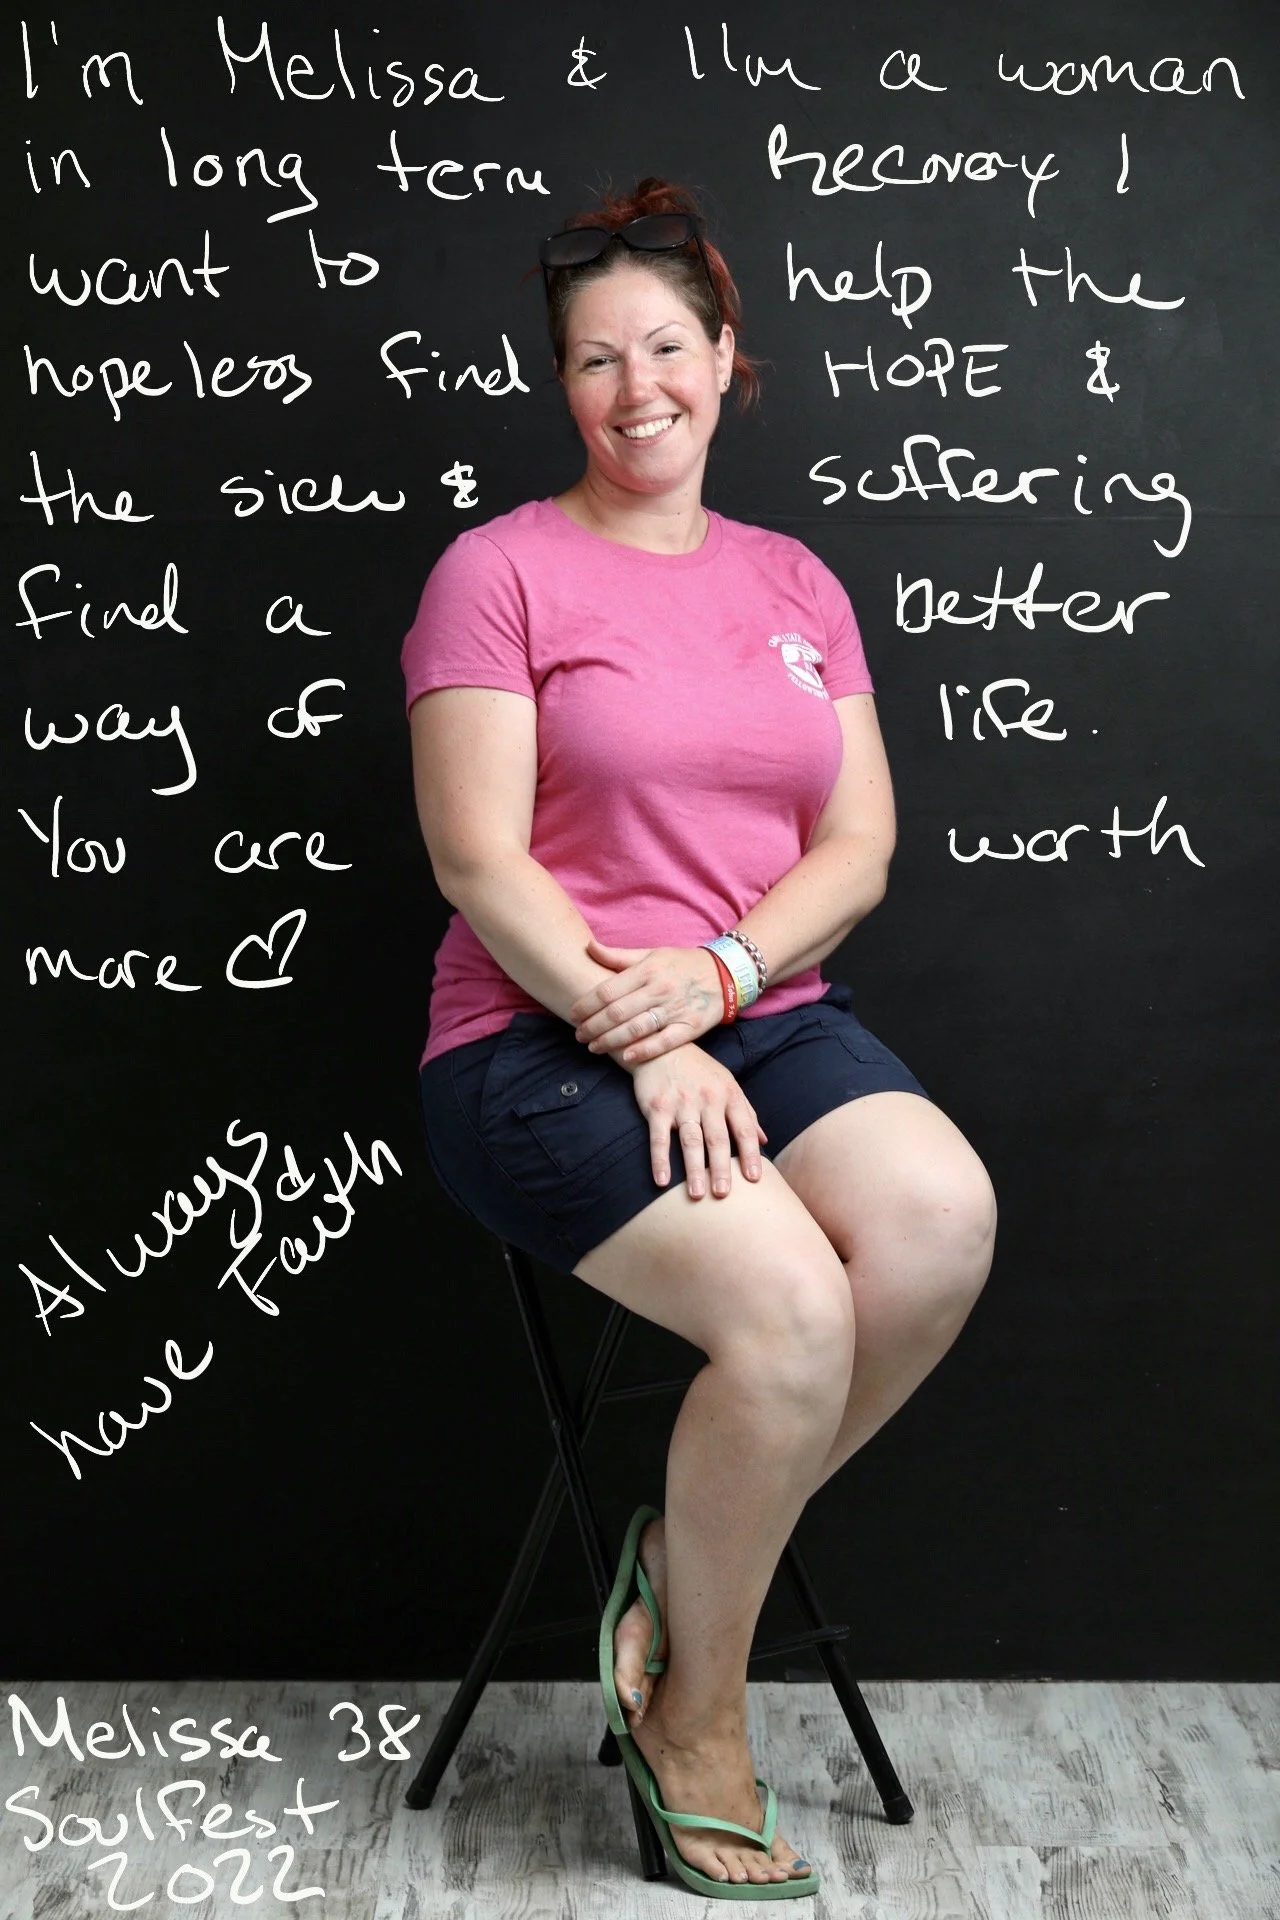 I'm Melissa & I'm a woman
in long term Recovery I
want to help the
hopeless find HOPE &
the sick & suffering
find a better
way of life.
You are worth
more ♡
Always &
have Faith
Melissa 38
Soulfest
2022